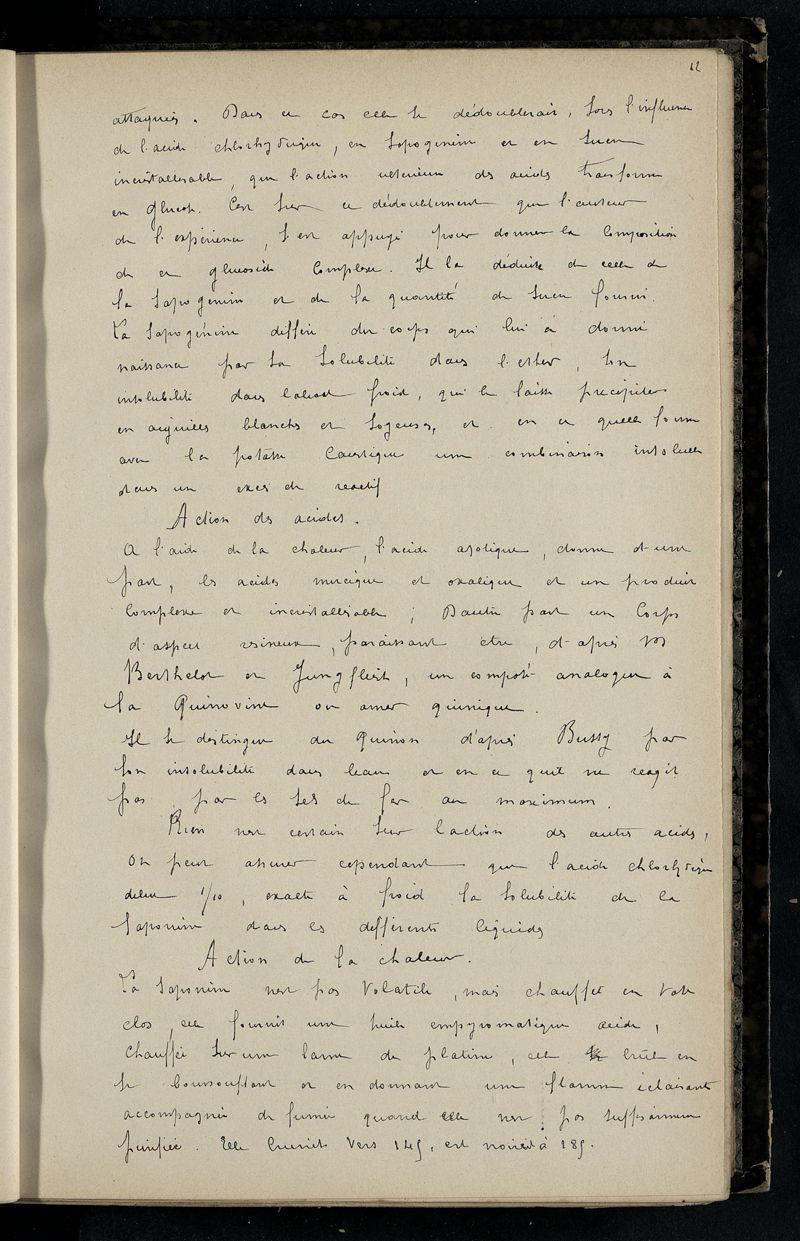 12
attaquées. Dans ce cas elle se dédoublerait, sous l'influence
de l'acide chlorhydrique, en sapogenine et en sucre
incristallisable, que l'action ulterieure des acides transforme
en glucose. C'est sur ce dédoublement que l'auteur
de l'expérience, s'est appuyé pour donner la composition
de ce glucoside complexe. Il la déduite de celle de
la sapogenine et de la quantité de sucre fourni.
La sapogénine differe du corps qui lui a donné
naissance par sa solubilité dans l'ether, son
insolubilité dans l'alcool froid, qui le laisse précipiter
en aiguilles blanches et soyeuses, et en ce quelle forme
avec la potasse caustique une combinaison insoluble
dans un exces de reactif
Action des acides.
A l'aide de la chaleur, l'acide azotique, donne d'une
part, les acides mucique et oxalique et un produit
complexe et incristallisable; D'autre part un corps
d'aspect resineux, paraissant etre, d'après
Berthelot et Jungfleisch, un composé analogue à
la Quinovine ou amer quinique.
Il se destingue du Quinon d'après Bussy par
son insolubilité dans l'eau et en ce qu'il ne reagit
pas par les sels de fer au maximum.
Rien n'est certain sur l'action des autres acids,
on peut assurer cependant que l'acide chlorhydrique
dilué 1/10, exalte à froid la solubilité de la
saponine dans les differents liquides
Action de la chaleur.
La saponine n'est pas volatile, mais chauffée en vase
clos, elle fournit une huile empyromatique acide,
chauffée sur une lame de platine, elle brûle en
se boursouflant et en donnant une flamme éclairante
accompagnée de fumée quand elle n'est pas suffisamment
purifiée. Elle brunit vers 145, et noircit à 185.